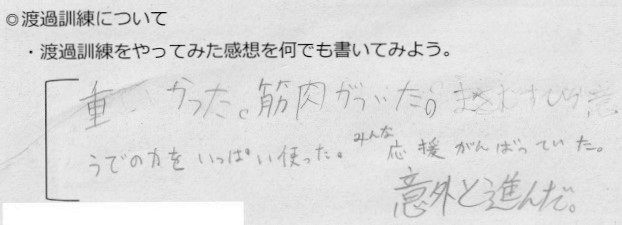 ◎渡過訓練について
・渡過訓練をやってみた感想を何でも書いてみよう。
重かった。筋肉がついた。
うでの力をいっぱい使った。みんな応援がんばっていた。
意外と進んだ。